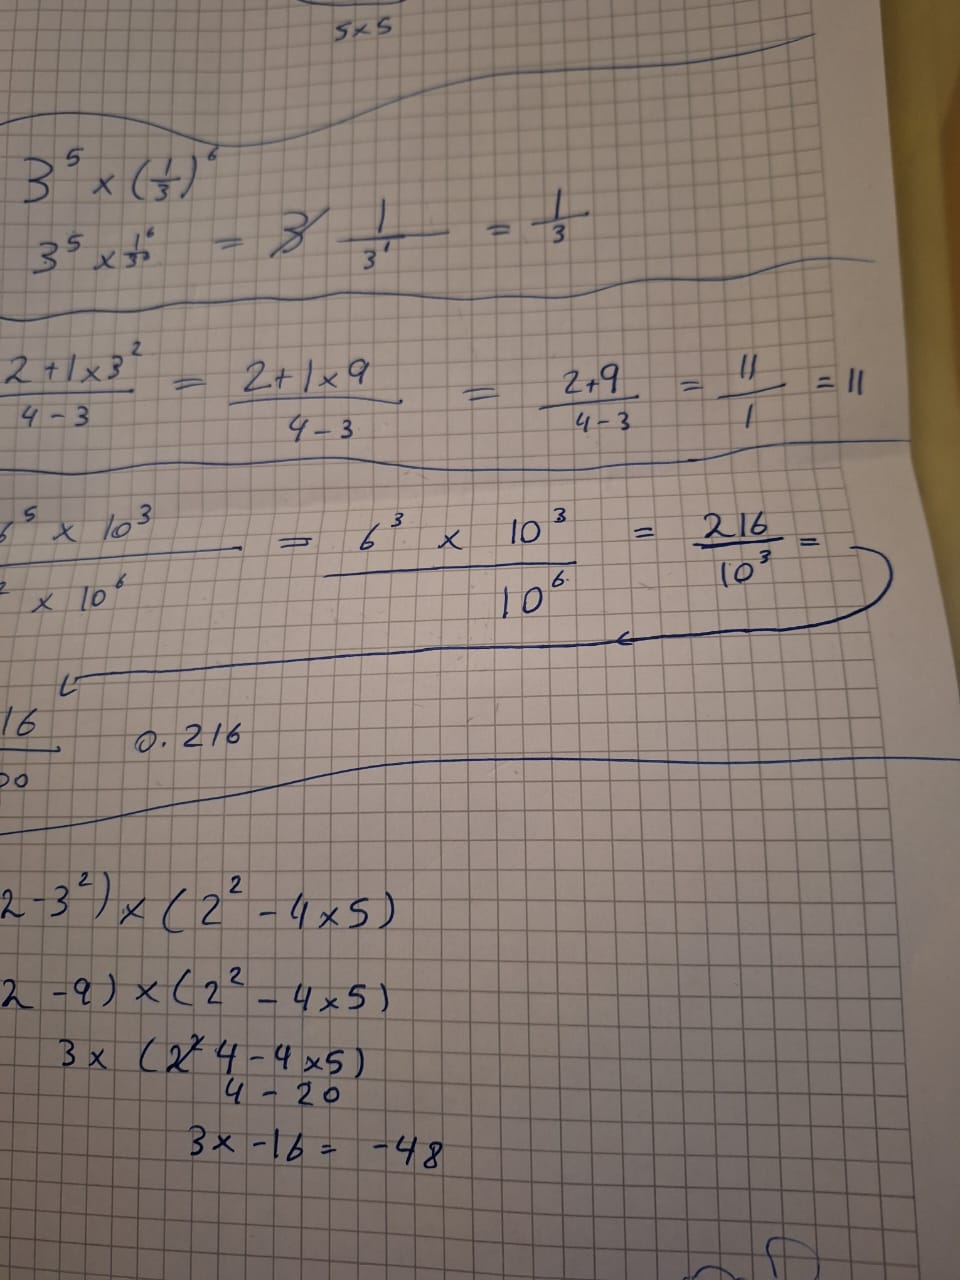 5×5
3⁵ × (1/3)⁶
3⁵ × 1⁶/3⁶ = 1/3¹ = 1/3
2+1×3²/4-3 = 2+1×9/4-3 = 2+9/4-3 = 11/1 = 11
6⁵ × 10³/² × 10⁶ = 6³ × 10³/10⁶ = 216/10³ =
16/00 0.216
2-3²) × (2² - 4×5)
2 -9) × (2² - 4×5)
3× (4 - 4×5)
4 - 20
3× -16 = -48